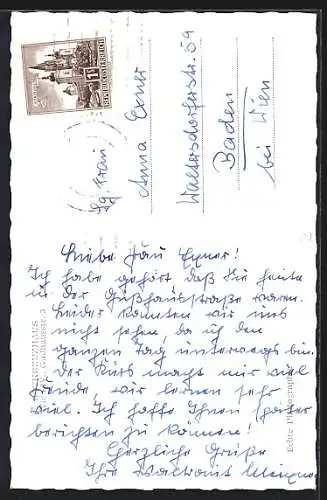 Sg. Frau
Anna Exner
Waltersdorferstr. 59
Baden
bei Wien
Liebe Frau Exner!
Ich habe gehört daß Sie heute
in der Gußhausstraße waren.
Leider konnten wir uns
nicht sehen, da ich den
ganzen Tag unterwegs bin.
Der Kurs macht mir viel
Freude, wir lernen sehr
viel. Ich hoffe Ihnen später
berichten zu können!
Herzliche Grüße
Ihre Waltraut
Echte Photographie
REPUBLIK ÖSTERREICH